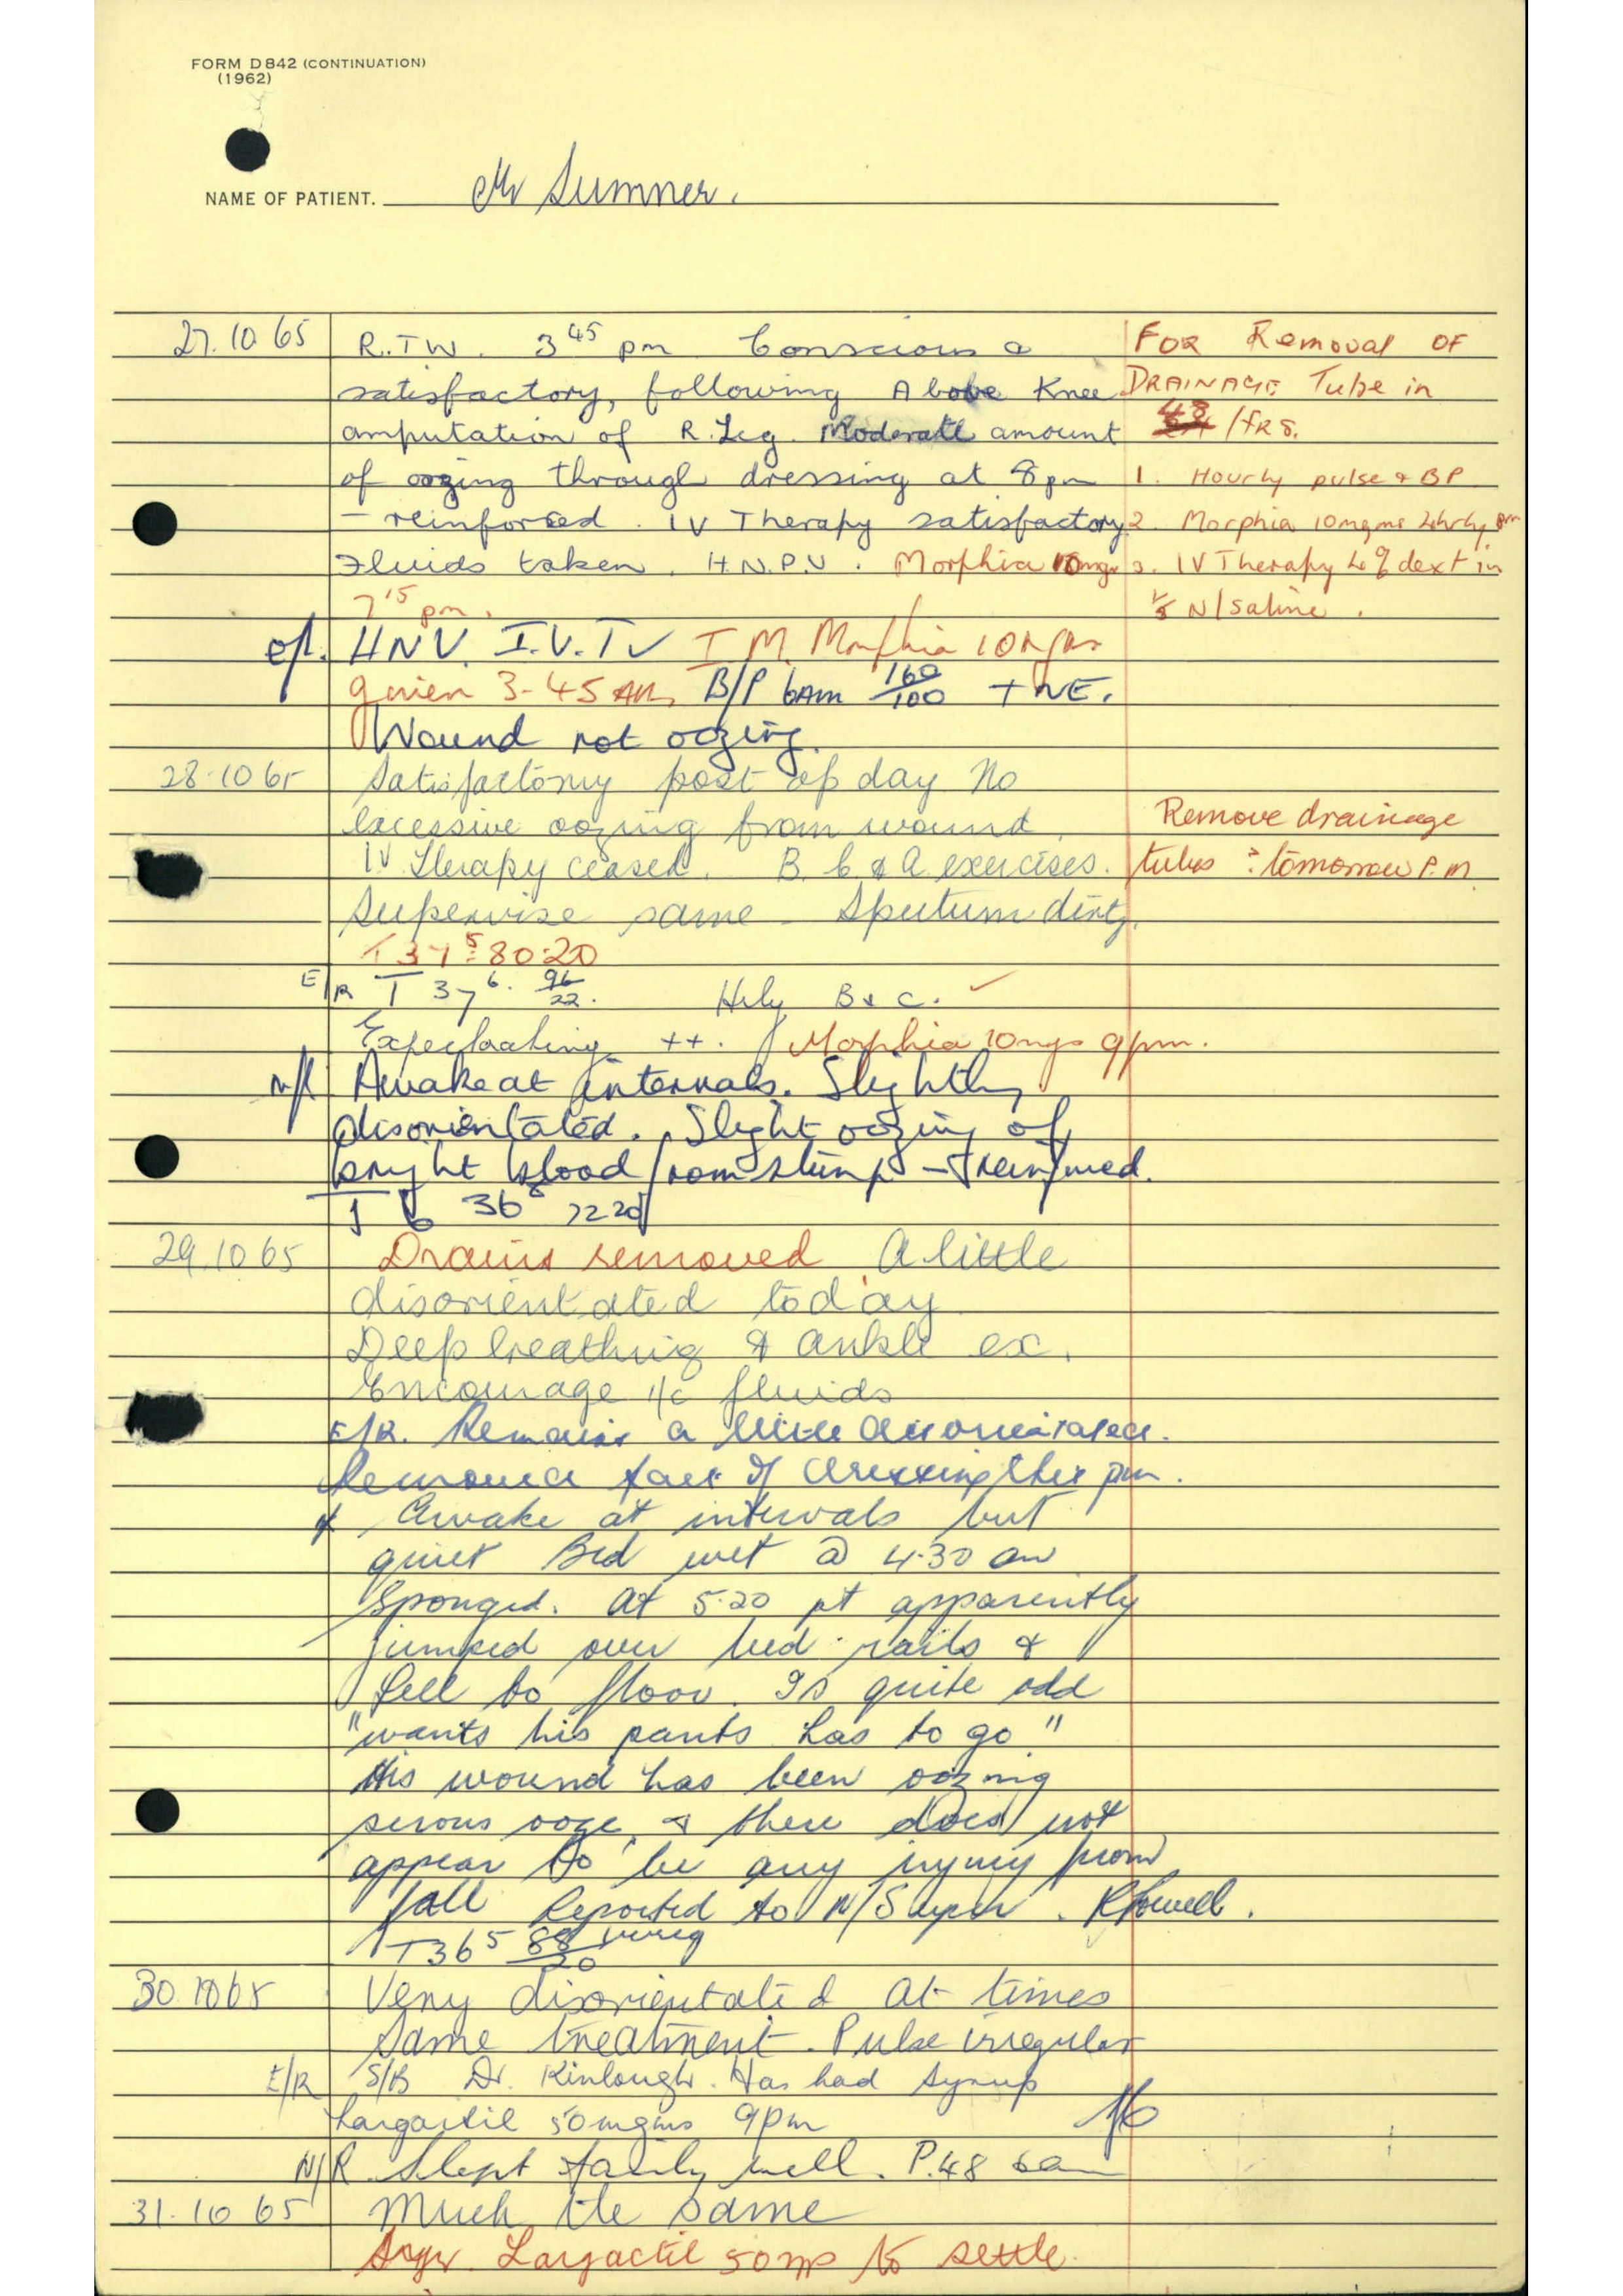 FORM D 842 (CONTINUATION)
(1962)
NAME OF PATIENT. Mr Sumner.
27.10 65 R.T.W. 3 45 pm Conscious &
satisfactory, following Above Knee
amputation of R. Leg. Moderate amount
of oozing through dressing at 8 pm
- reinforced. IV Therapy satisfactory
Fluids taken. H.N.P.U. Morphia 10mgs
7 15 pm.
FOR Removal OF
DRAINAGE Tube in
48 /hrs.
1. Hourly pulse & BP
2. Morphia 10mgms 4hrly
3. IV Therapy 4% dext in
1/5 N/saline.
HNV. I.V.T✓ I.M. Morphia 10mgms
given 3-45 AM, B/P 6AM 160/100
Wound not oozing.
28.10 65 Satisfactory post op day No
excessive oozing from wound.
IV therapy ceased. B. C & A exercises.
Supervise same - Sputum dirty.
Remove drainage
tubes tomorrow P.M.
T 37 5 80:20
E/R T 37 6. 96/22. Hrly B & C. ✓
Expectorating ++. Morphia 10mgs 9pm.
N/R Awake at intervals. Slightly
disorientated. Slight oozing of
bright blood from stump - reinforced.
36 8 72 20
29.10 65 Drains removed A little
disorientated today
Deep breathing & ankle ex.
Encourage fluids
E/R. Remains a little disorientated.
Removed part of dressing this pm.
Awake at intervals but
quiet Bed wet @ 4.30 am
Sponged. At 5.20 pt apparently
jumped over bed-rails &
fell to floor. Is quite odd
"wants his pants has to go"
His wound has been oozing
serous ooze, & there does not
appear to be any injury from
fall Reported to N/Super. R Powell.
T 36 5 88/20 irreg
30.10 65 Very disorientated at times
Same treatment. Pulse irregular
E/R S/B Dr. Kinlough. Has had Syrup
Largactil 50mgms 9pm
N/R Slept fairly well. P.48 6am
31.10 65 Much the same
Syr. Largactil 50 mgs to settle.